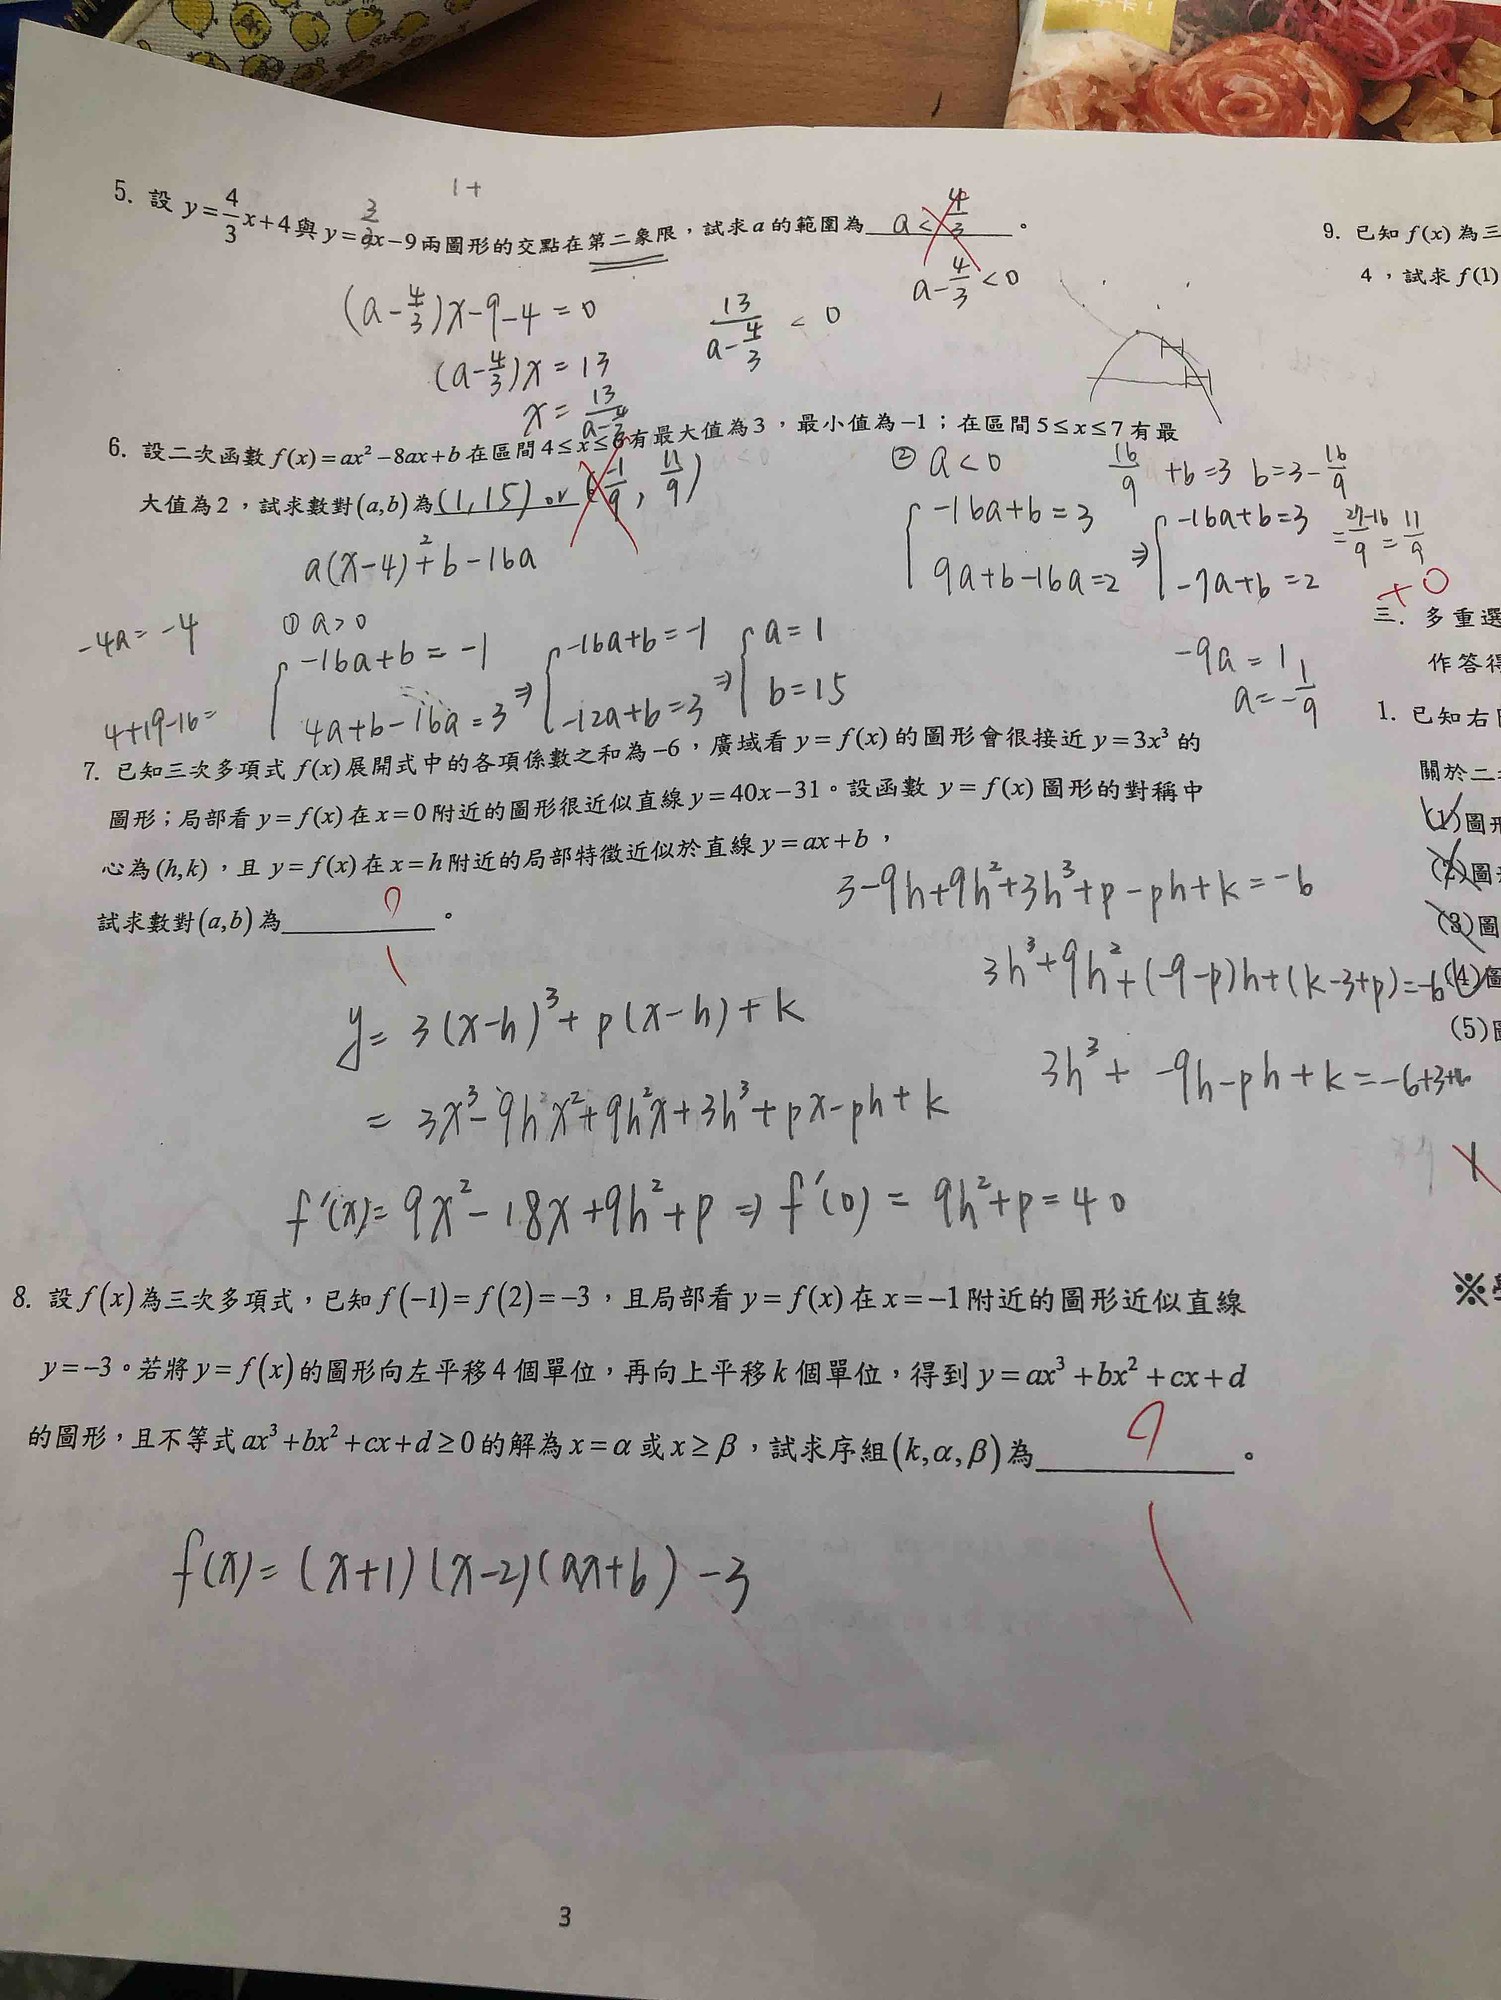 1+
5. 設 y=4/3x+4與y=ax-9兩圖形的交點在第二象限，試求a的範圍為 a<4/3 。
a-4/3<0
(a-4/3)x-9-4=0
13/(a-4/3) < 0
(a-4/3)x=13
x=13/(a-4/3)
6. 設二次函數 f(x)=ax²-8ax+b 在區間4≤x≤6有最大值為3，最小值為-1；在區間5≤x≤7有最
大值為2，試求數對(a,b)為(1,15) or (-1/9, 11/9)
a(x-4)²+b-16a
② a<0
16/9+b=3 b=3-16/9
=27-16/9=11/9
{-16a+b=3 ⇒ {-16a+b=3
9a+b-16a=2 -7a+b=2
-9a=1
a=-1/9
① a>0
-4a=-4
{-16a+b=-1 ⇒ {-16a+b=-1 ⇒ {a=1
4a+b-16a=3 -12a+b=3 b=15
4+19-16=
7. 已知三次多項式 f(x)展開式中的各項係數之和為-6，廣域看y=f(x)的圖形會很接近y=3x³的
圖形；局部看y=f(x)在x=0附近的圖形很近似直線y=40x-31。設函數 y=f(x)圖形的對稱中
心為(h,k)，且 y=f(x)在x=h附近的局部特徵近似於直線y=ax+b，
試求數對(a,b)為 ? 。
3-9h+9h²+3h³+p-ph+k=-6
3h³+9h²+(-9-p)h+(k-3+p)=-6
y=3(x-h)³+p(x-h)+k
3h³+ -9h-ph+k=-6+3+
=3x³-9hx²+9h²x+3h³+px-ph+k
f'(x)=9x²-18x+9h²+p⇒f'(0)=9h²+p=40
8. 設f(x)為三次多項式，已知f(-1)=f(2)=-3，且局部看y=f(x)在x=-1附近的圖形近似直線
y=-3。若將y=f(x)的圖形向左平移4個單位，再向上平移k個單位，得到y=ax³+bx²+cx+d
的圖形，且不等式ax³+bx²+cx+d≥0的解為x=α或x≥β，試求序組(k,α,β)為 ? 。
f(x)=(x+1)(x-2)(ax+b)-3
3
9. 已知f(x)為三
4，試求f(1)
+0
三. 多重選
作答得
1. 已知右
關於二
(1)圖形
(2)圖
(3)圖
(4)圖
(5)
※